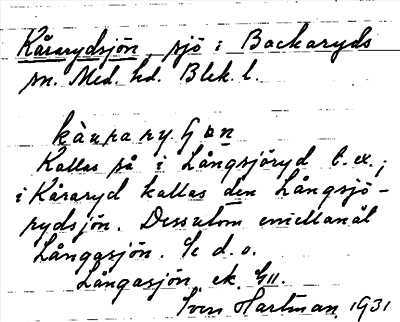 Kårarydsjön, sjö i Backaryds
sn. Med. hd. Blek. l.
Kallas så i Långsjöryd t. ex.;
i Kåraryd kallas den Långsjö-
rydsjön. Dessutom emellanåt
Långasjön. Se d. o.
Långasjön, ek.
Sven Hartman 1931